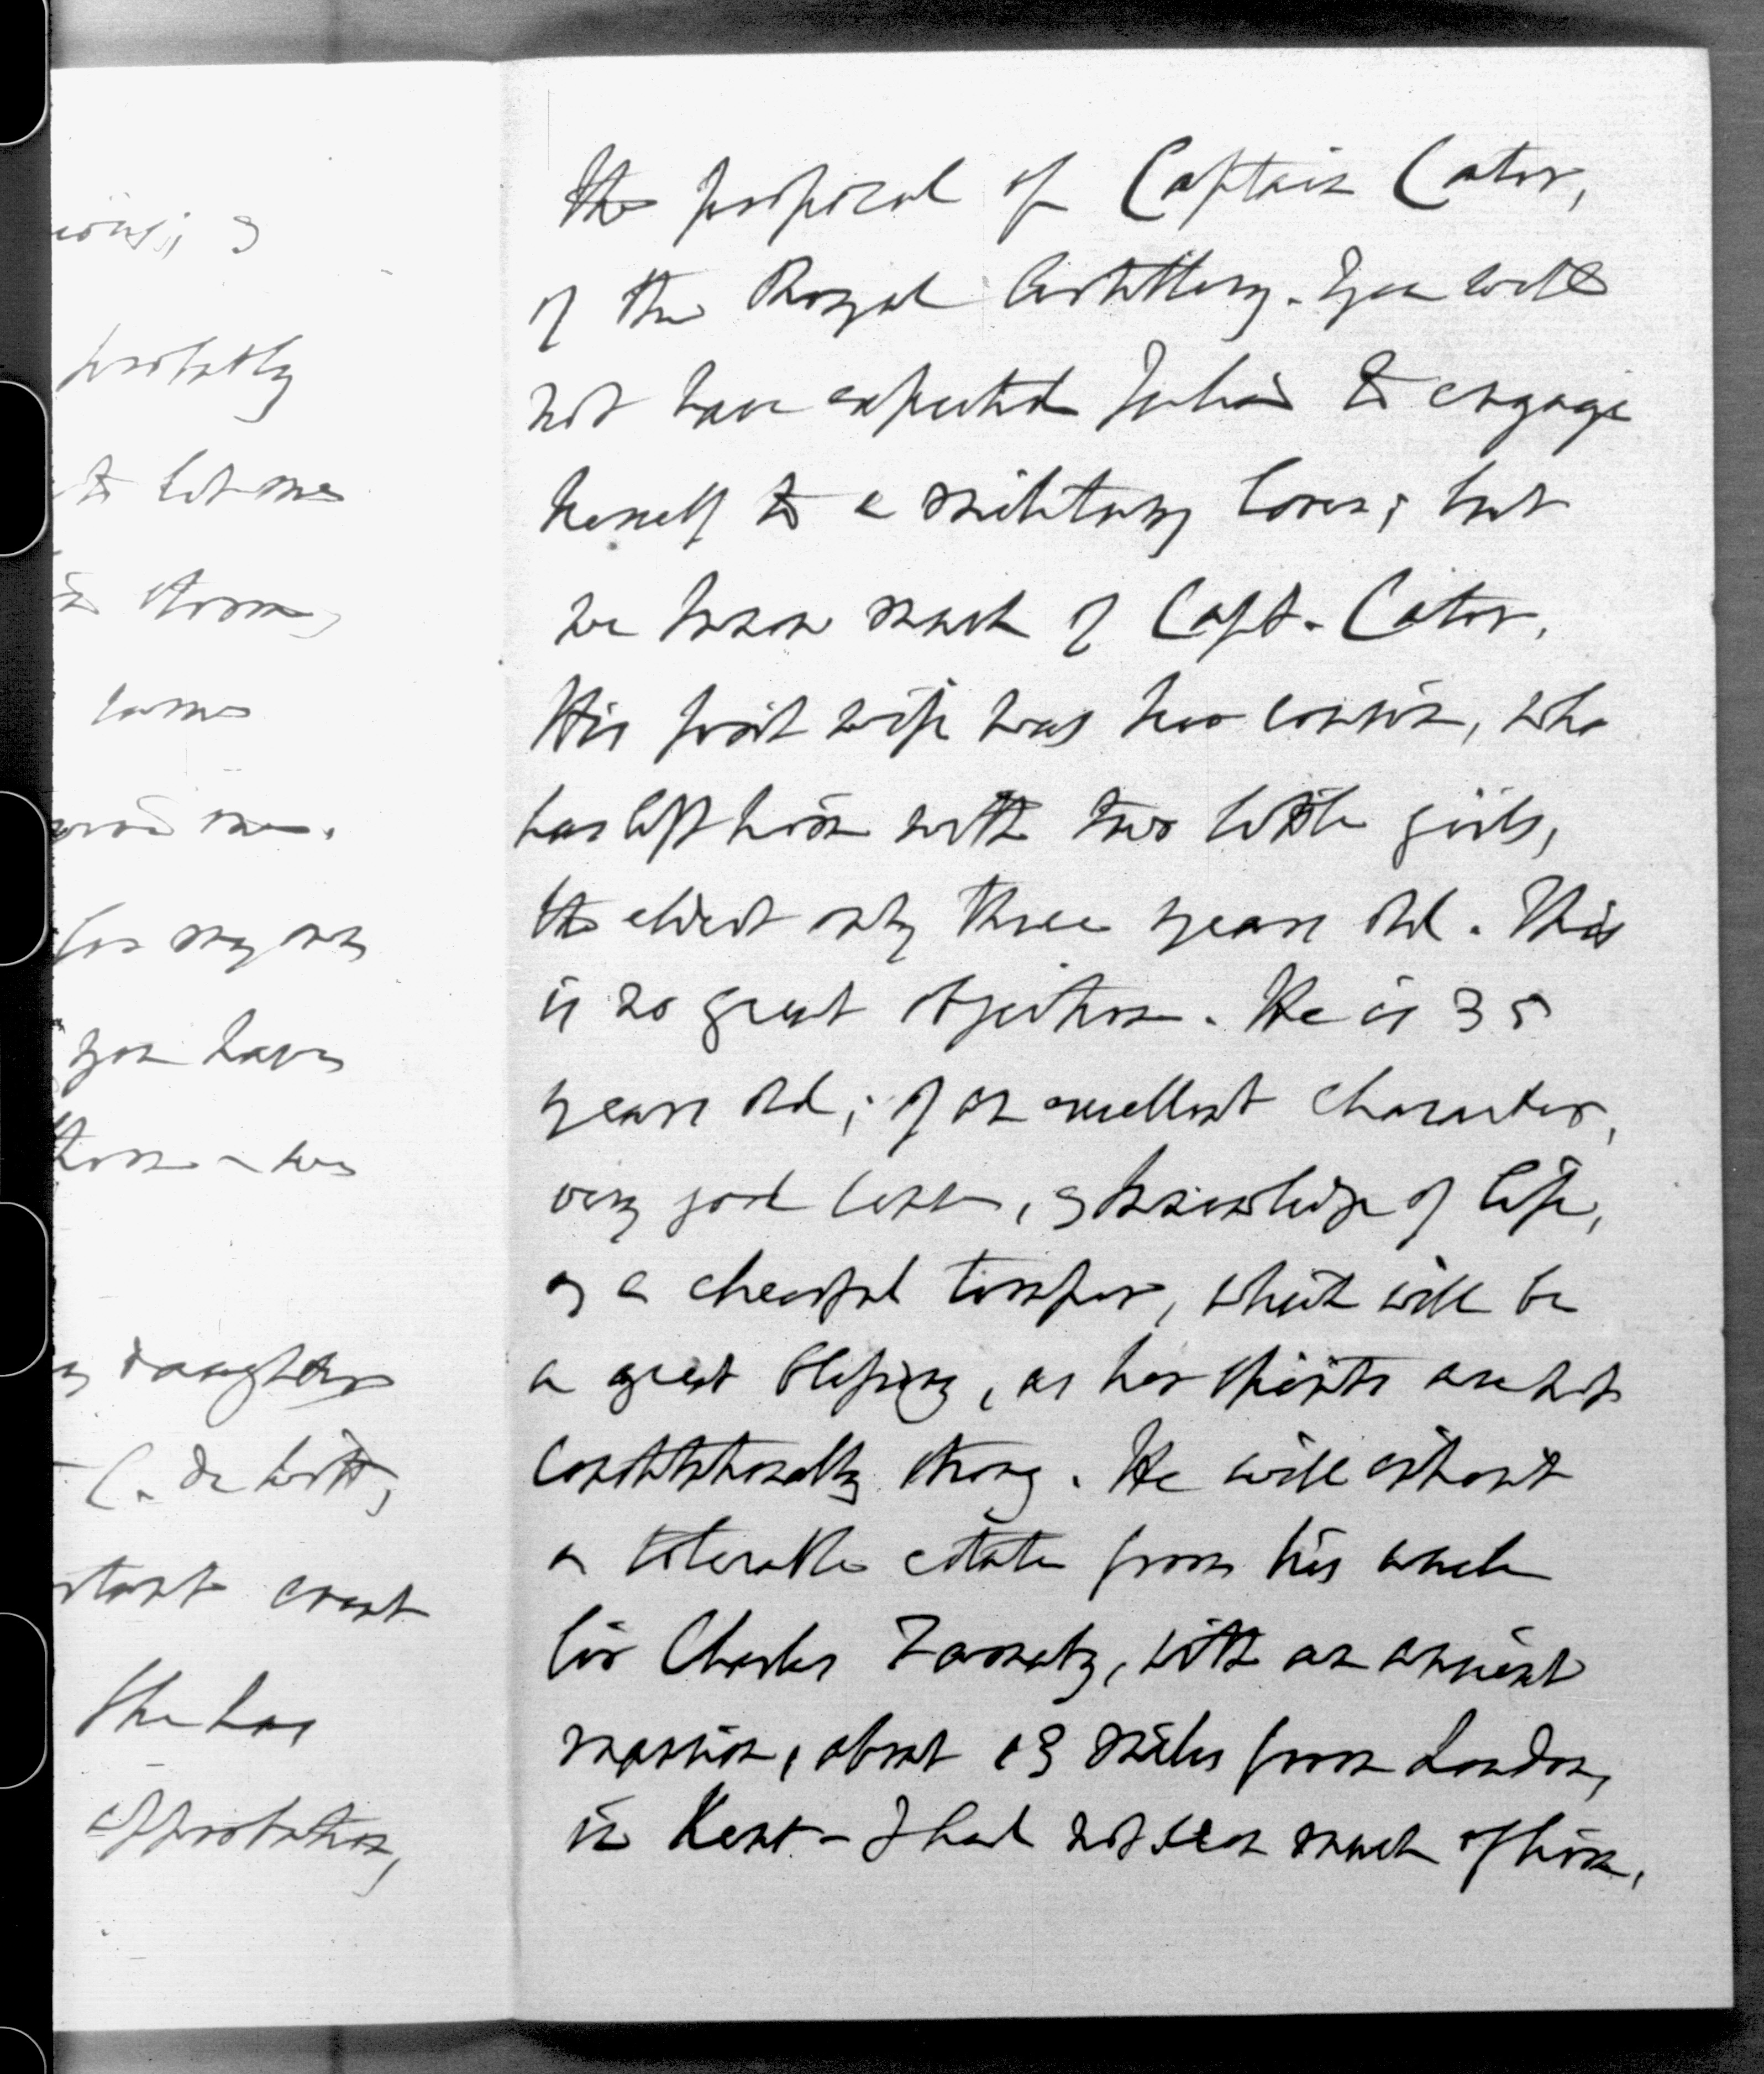 ious; &
probably
to let me
in them,
came
me.
for my own
you have
them - her
my daughter
C. de Witt,
event
She has
approbation,
the proposal of Captain Cator,
of the Royal Artillery. You will
not have expected Julia to engage
herself to a military lover; but
we know much of Capt. Cator.
His first wife was her cousin, who
has left him with two little girls,
the eldest only three years old. This
is no great objection. He is 35
years old; of an excellent character,
very good sense, & knowledge of life,
& a cheerful temper, which will be
a great blessing, as her spirits are not
constitutionally strong. He will inherit
a tolerable estate from his uncle
Sir Charles Farnaby, with an ancient
mansion, about 13 miles from London,
in Kent - I had not seen much of him,